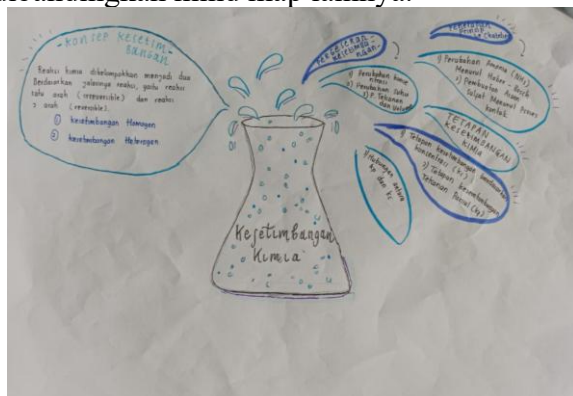 - KONSEP KESETIM-
BANGAN
Reaksi kimia dikelompokkan menjadi dua
Berdasarkan jalannya reaksi, yaitu reaksi
satu arah (irreversible) dan reaksi
2 arah (reversible).
① kesetimbangan Homogen
② kesetimbangan Heterogen
PERGESERAN
KESETIMBA-
NGAN
1) Perubahan konse
ntrasi
2) Perubahan Suhu
3) P. Tekanan
dan Volume
PENERAPAN
PRINSIP
Le Chatelier
1) Pembuatan Amonia (NH3)
Menurut Haber - Bosch
2) Pembuatan Asam
Sulfat Menurut Proses
kontak
TETAPAN
KESETIMBANGAN
KIMIA
1) Tetapan kesetimbangan berdasarkan
konsentrasi (kc)
2) Tetapan kesetimbangan
Tekanan Parsial (kp)
3) Hubungan antara
kp dan kc
Kesetimbangan
Kimia